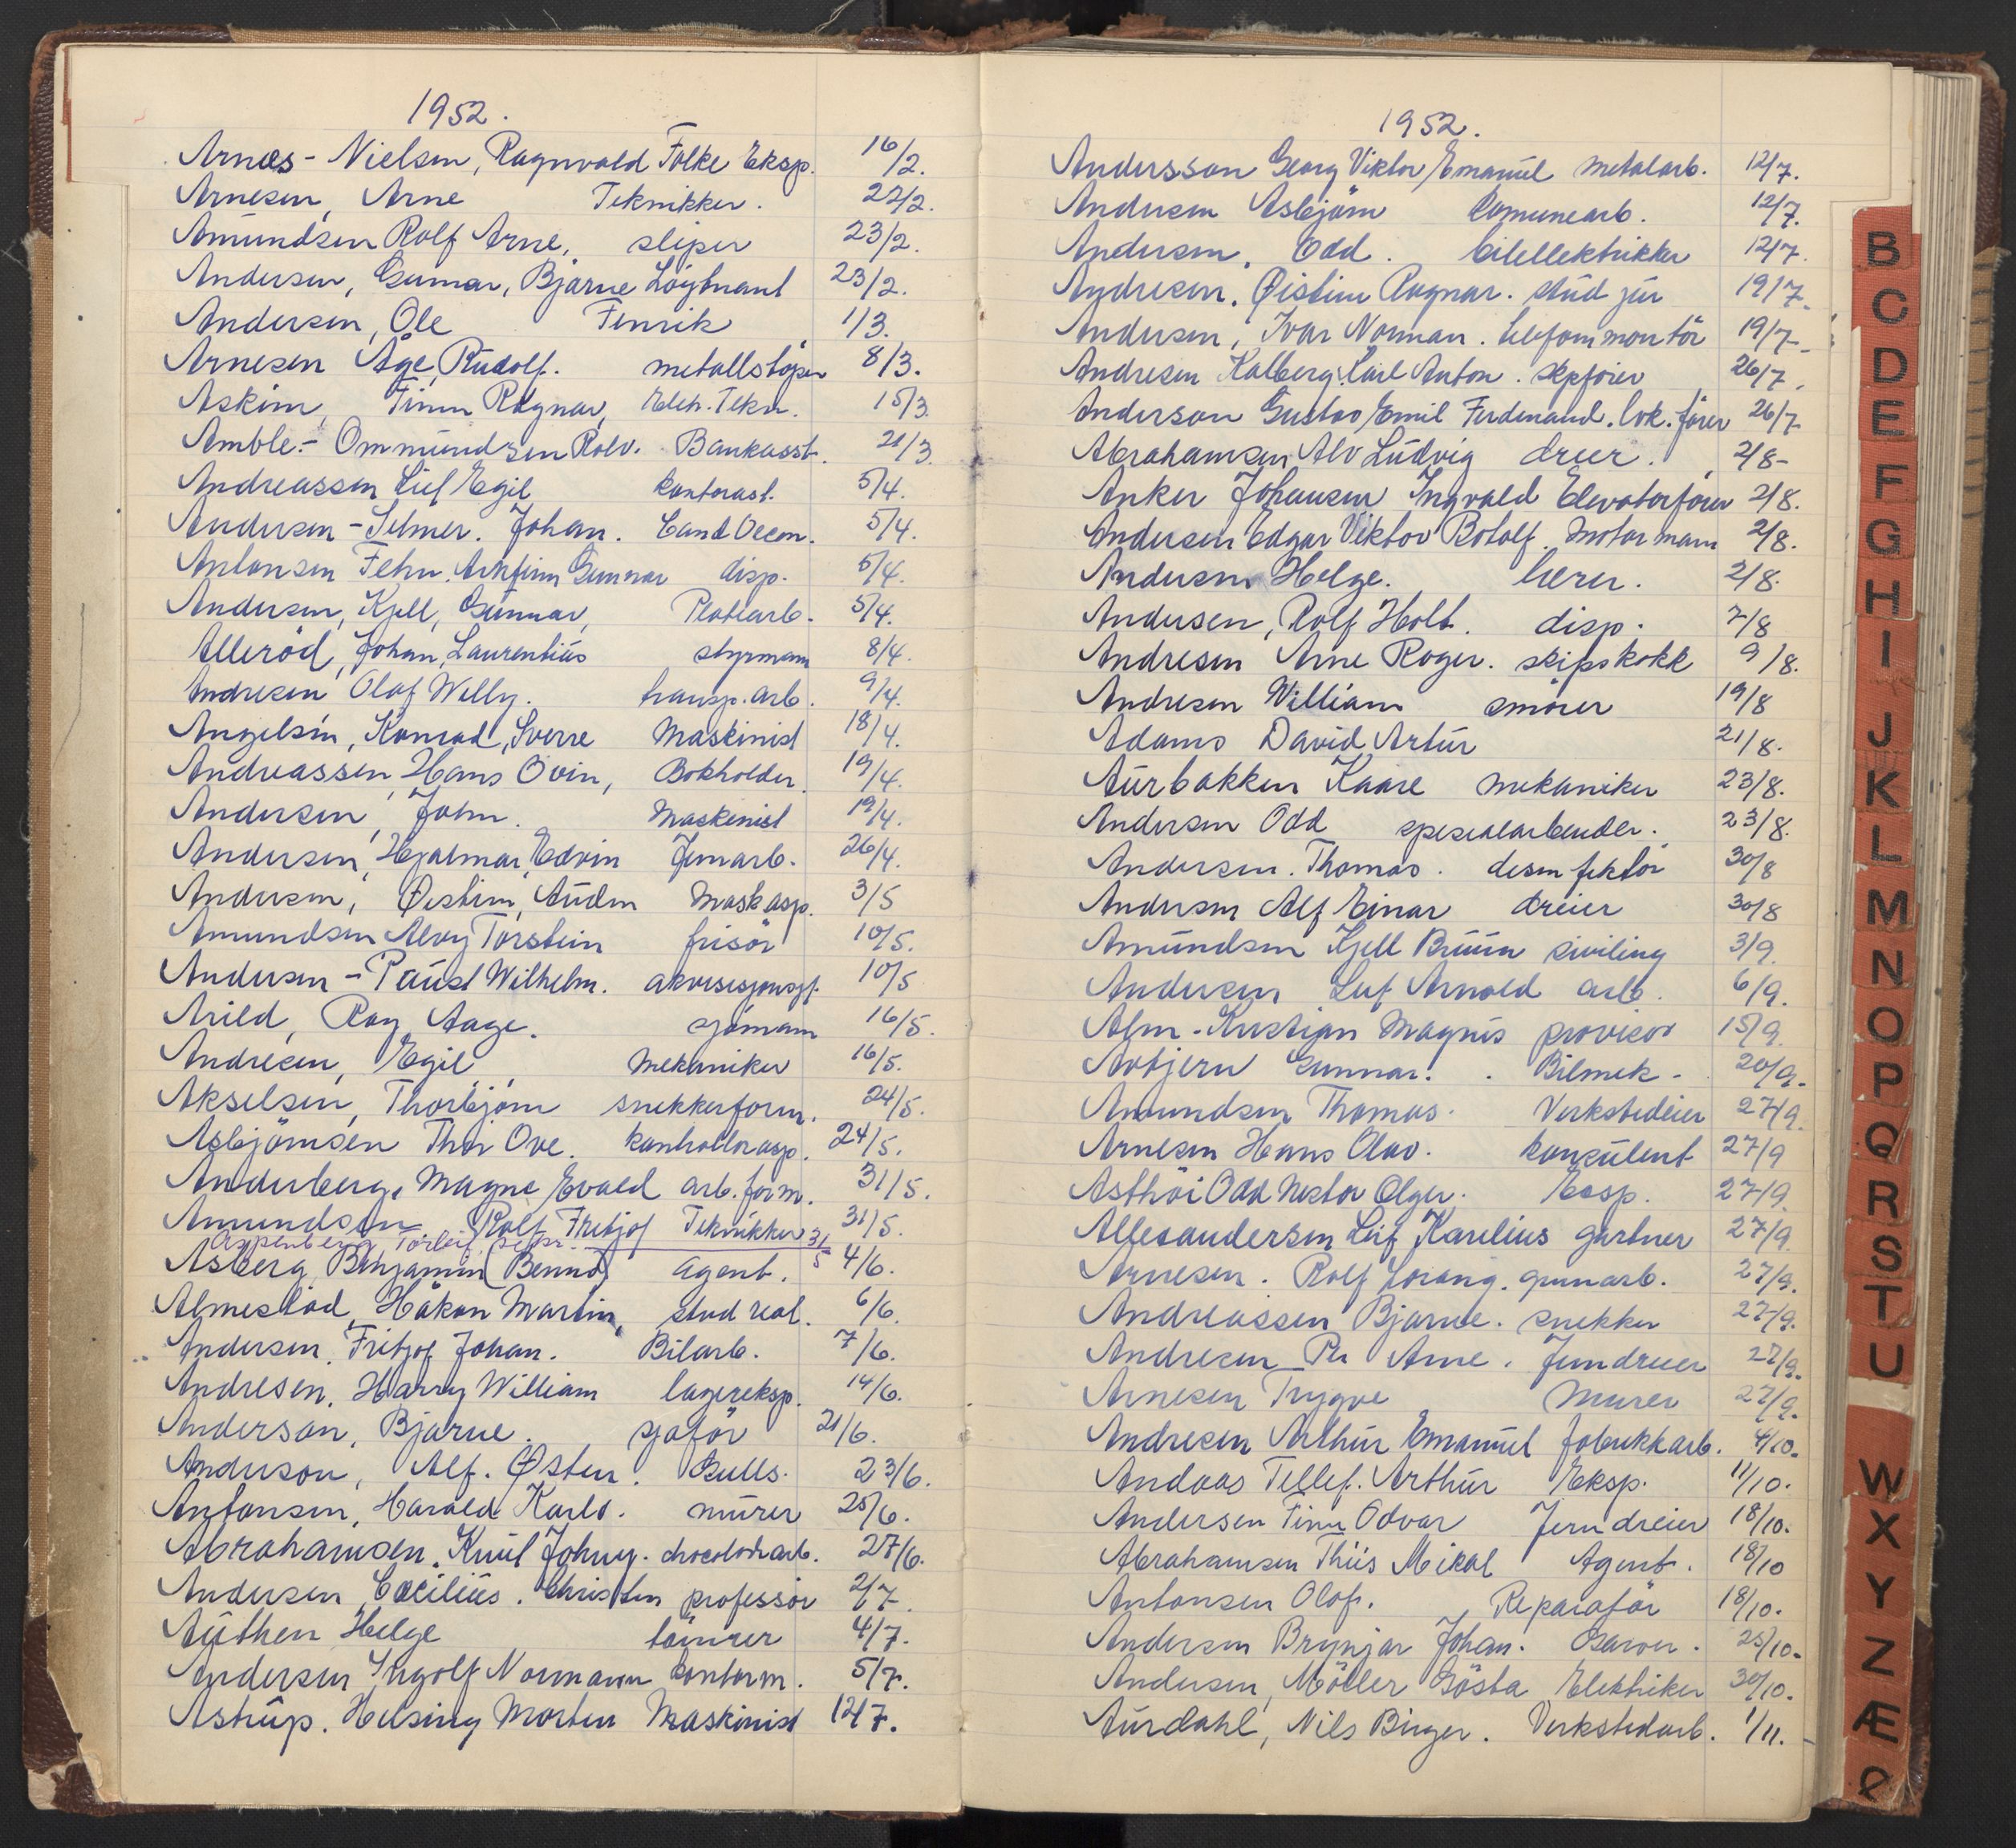 1952.
Arnæs - Nielsen, Ragnvald Folke Eksp. 16/2.
Arnesen, Arne Teknikker. 22/2.
Amundsen Rolf Arne, sliper 23/2.
Andersen, Gunnar, Bjarne Löytnant 23/2.
Andersen, Ole Fenrik 1/3.
Arnesen Åge, Rudolf. metallstöper 8/3.
Askim, Finn Ragnar, Elek. Tekn. 15/3.
Amble - Ommundsen Rolv. Bankasst. 21/3.
Andreassen Leif Egil kontorast. 5/4.
Andersen - Selmer. Johan. Cand Oecon. 5/4.
Antonsen Fehn. Arnfinn Gunnar disp. 5/4.
Andersen, Kjell, Gunnar, Platearb. 5/4.
Alleröd, Johan, Laurentius styrmann 8/4.
Andresen Olaf Willy. transp. arb. 9/4.
Angelsin, Konrad, Sverre Maskinist 18/4.
Andreassen, Hans Ovin, Bokholder. 19/4.
Andersen, John. Maskinist 19/4.
Andersen, Hjalmar, Edvin Jernarb. 26/4.
Andersen, Øistein, Audun Maskasp. 3/5
Amundsen Alvy Torstein frisör 10/5.
Andersen - Paust Wilhelm. akvisisjonssj. 10/5
Arild, Roy Aage. sjömann 16/5.
Andresen, Egil, mekaniker 16/5.
Akselsen, Thorbjörn snekkerform. 24/5.
Asbjörnsen Thor Ove. kontrollörasp. 24/5.
Anderberg, Magne Evald arb. form. 31/5.
Amundsen Rolf Fritjof Teknikker 31/5.
Appenberg, Torleif, 31/5
Åsberg, Benjamin (Bennd) agent. 4/6.
Almestad, Håkon Martin, stud real. 6/6.
Andersen, Fritjof Johan. Bilarb. 7/6.
Andresen, Harry William lagereksp. 14/6.
Anderson, Bjarne. sjåför 21/6.
Anderson, Alf. Østen. Gulls. 23/6.
Antonsen, Harald Karlo. murer 25/6.
Abrahamsen, Knut Johny. chocoladearb. 27/6.
Andersen Cæcilius. Christen professor 2/7.
Authen Helge tömrer 4/7.
Andersen Ingolf Normann kontorm. 5/7.
Astrup. Helsing Morten Maskinist 12/7.
1952.
Andersson Georg Viktor Emanuel metalarb. 12/7.
Andersen Asbjörn Comunearb. 12/7.
Andersen, Odd. bilellektrikker 12/7.
Andresen, Øistein Ragnar. stud jur 19/7.
Andersen, Ivar Norman. telefonmontör 19/7.
Andresen Kalberg Carl Anton. skpförer 26/7.
Anderson Gustav Emil Ferdinand. lok. förer 26/7
Abrahamsen Alv Ludvig dreier. 2/8 -
Anker Johansen Ingvald Elevatorförer 2/8.
Andersen Edgar Viktor Botolf Motormann 2/8.
Andersen Helge. lærer. 2/8.
Andersen, Rolf Holt. disp. 7/8
Andresen Arne Roger. skipskokk 9/8.
Andresen William smörer 19/8
Adams David Artur 21/8.
Aurbakken Kaare mekaniker 23/8.
Andersen Odd spesialarbeider. 23/8.
Andersen. Thomas. desinfektör 30/8
Andersen Alf Einar dreier 30/8
Amundsen Kjell Bruun siviling 3/9.
Andersen Leif Arnold arb. 6/9.
Alm - Kristian Magnus provisor 15/9.
Avbjern Gunnar. Bilmek - 20/9.
Amundsen Thomas. Verkstedeier 27/9.
Arnesen Hans Olav. konsulent 27/9
Asthöi Odd Nestor Olger. Eksp. 27/9.
Allexandersen Leif Karelius gartner 27/9.
Arnesen. Rolf Lorang. gumarb. 27/9.
Andreassen Bjarne. snekker 27/9.
Andresen Per Arne. Jerndreier 27/9.
Arnesen Trygve Murer 27/9.
Andresen Arthur Emanuel fabrikkarb. 4/10.
Andaas Tellef. Arthur Eksp. 11/10.
Andersen Finn Odvar Jerndreier 18/10.
Abrahamsen Thiis Mikal Agent. 18/10
Antonsen Olaf. Reparatör 18/10.
Andersen Brynjar Johan. Garver. 25/10.
Andersen, Möller Gösta Elektriker 30/10.
Aurdahl, Nils Birger. Verkstedarb. 1/11.
B
C
D
E
F
G
H
I
J
K
L
M
N
O
P
Q
R
S
T
U
W
X
Y
Z
Æ